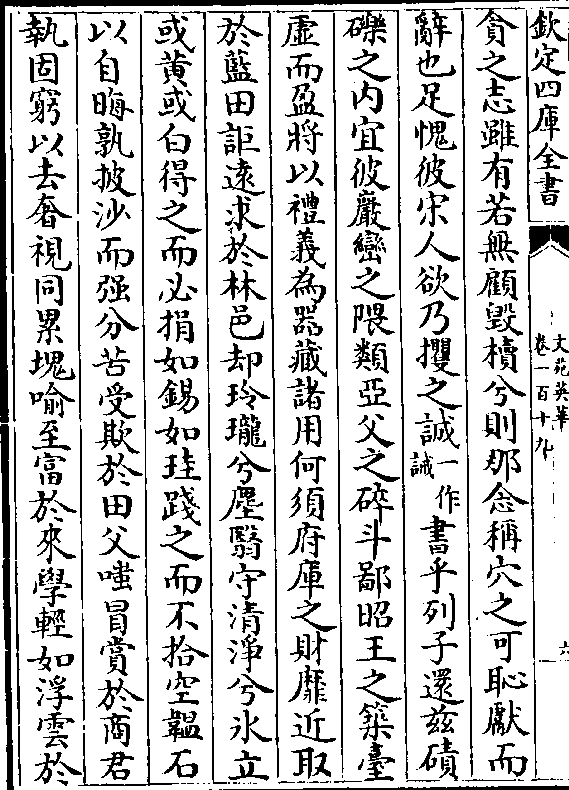 欽定四庫全書
文苑英華
卷一百十九
六
貪之志雖有若無顧毁櫝兮則那念稱穴之可恥獻而
辭也足愧彼宋人欲乃攫之誠一作誡書乎列子還兹磧
礫之内宜彼巖巒之隈類亞父之碎斗鄙昭王之築臺
虛而盈將以禮義為器藏諸用何須府庫之財靡近取
於藍田詎遠求於林邑却玲瓏兮塵翳守清淨兮氷立
或黄或白得之而必捐如錫如珪踐之而不拾空韞石
以自晦孰披沙而强分苦受欺於田父嗤冒賞於商君
執固窮以去奢視同累塊喻至富於來學輕如浮雲於